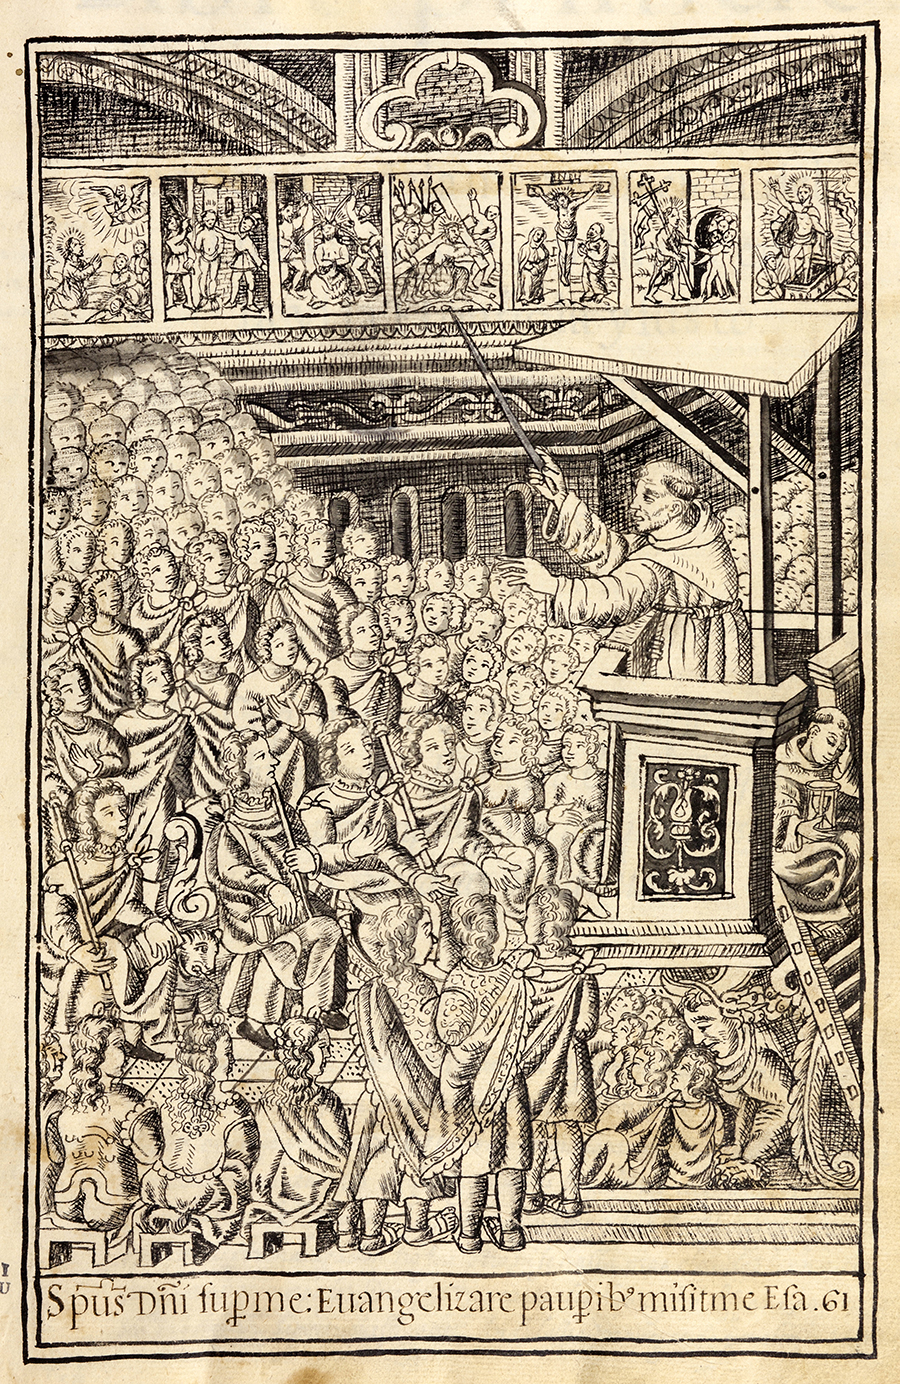 Sp̃us Dñi suꝑme: Euangelizare pauꝑibꝰ misit me Esa. 61